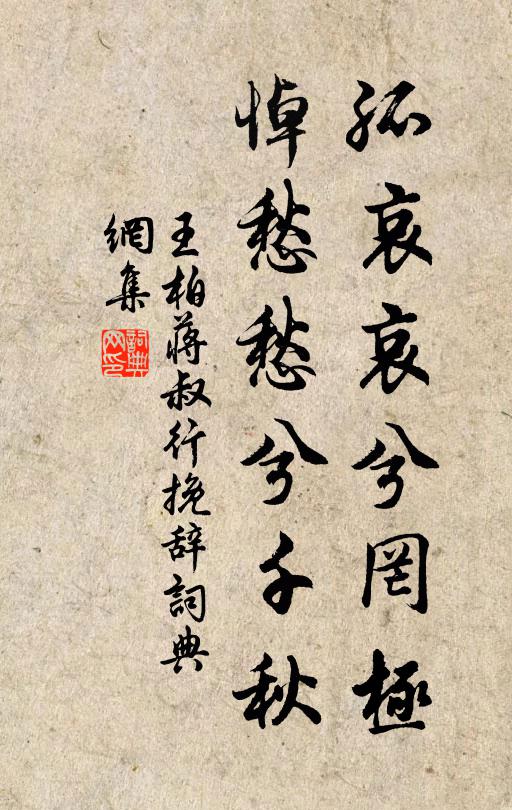 孤哀哀兮罔極
悼愁愁兮千秋
王柏蔣叔行挽辞詞典
網集
詞典
网印